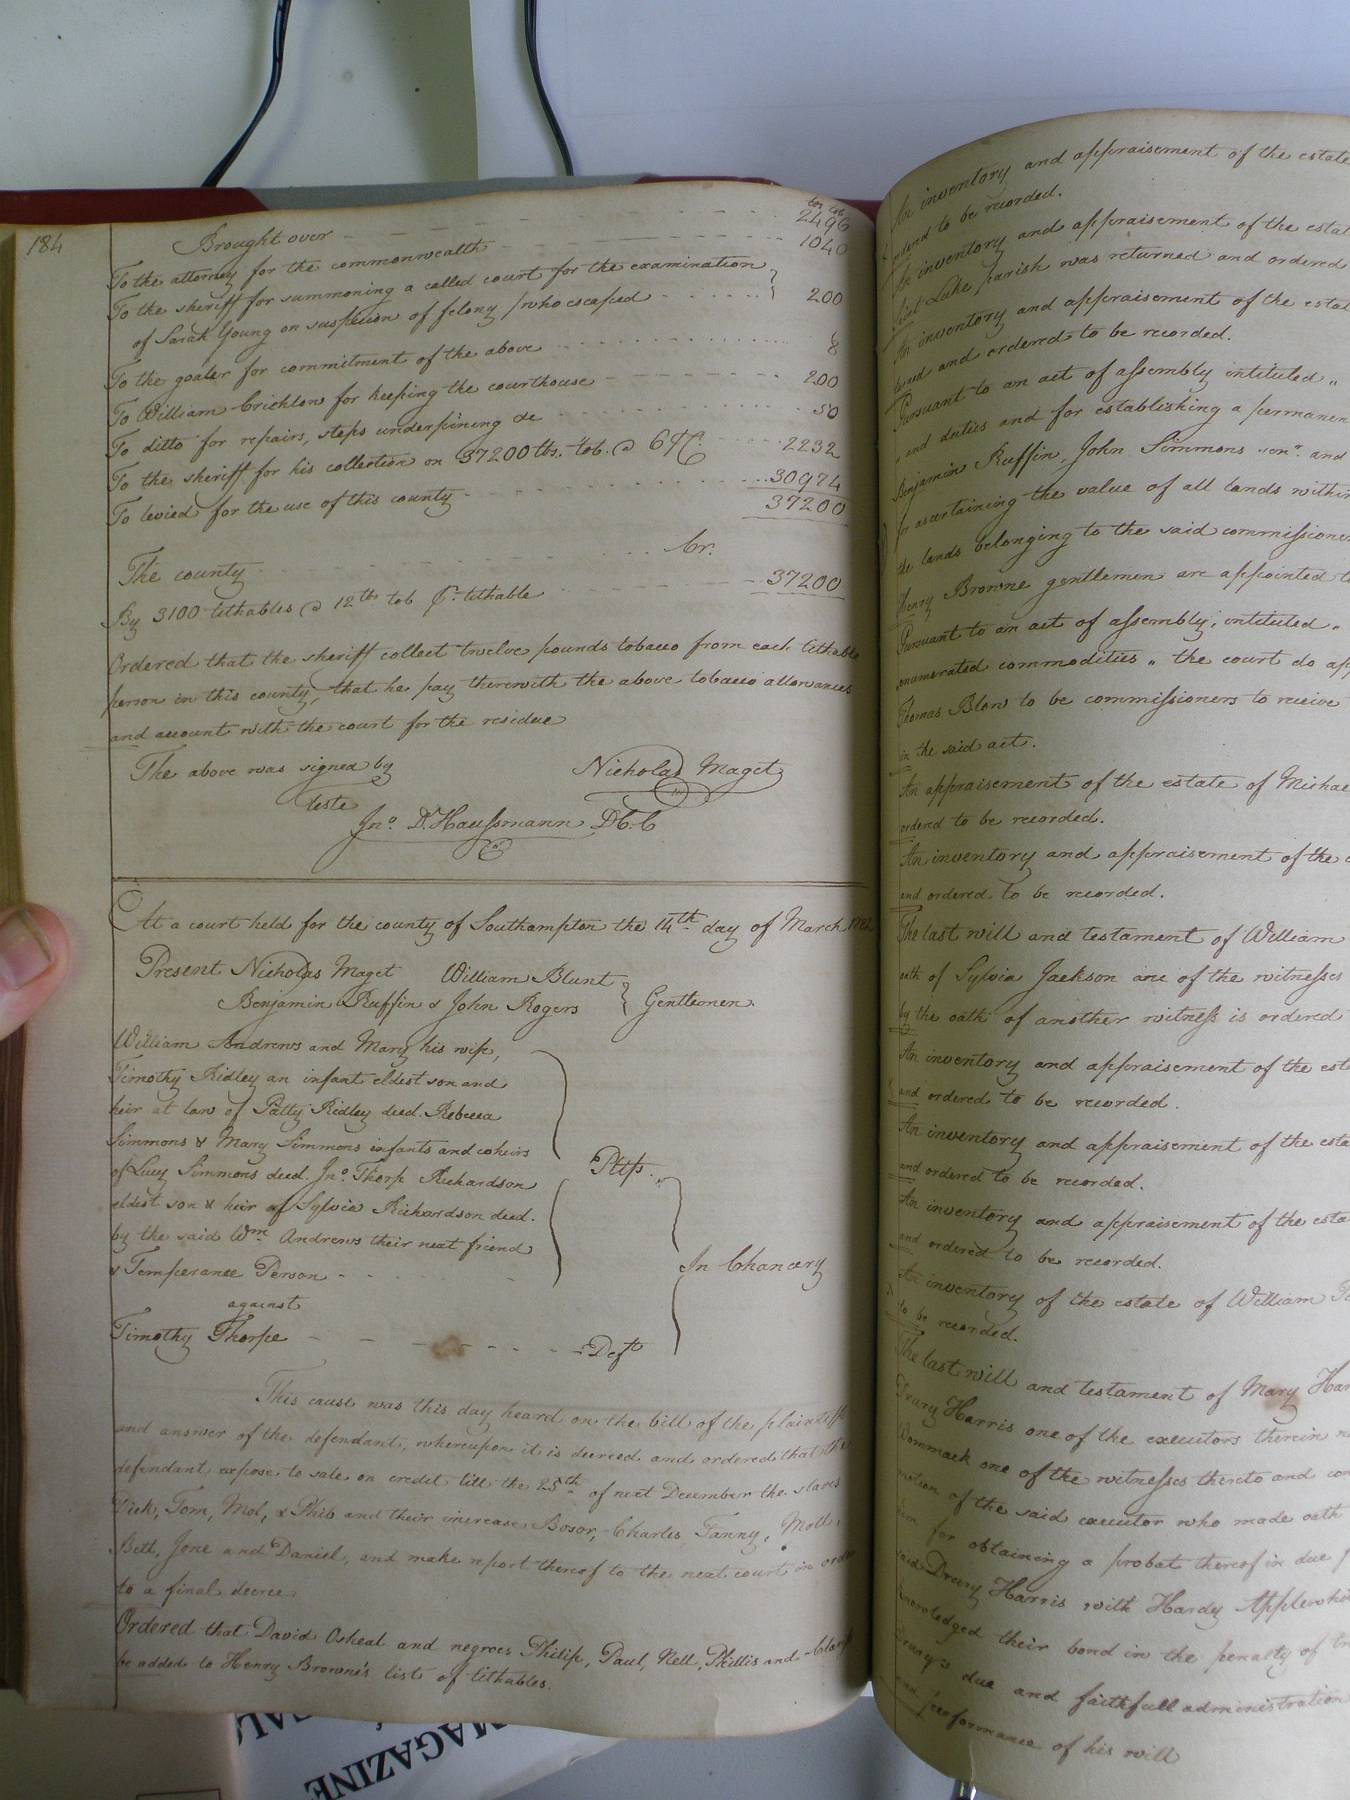 184
lbs tob
Brought over 2496
To the attorney for the commonwealth 1040
To the sheriff for summoning a called court for the examination
of Sarah Young on suspicion of felony /who escaped 200
To the goaler for commitment of the above 8
To William Crichlow for keeping the courthouse 200
To ditto for repairs, steps underpining &c 50
To the sheriff for his collection on 37200 lbs. tob. @ 6 P Ct. 2232
To levied for the use of this county 30974
37200
The county Cr.
By 3100 tithables @ 12 lb tob P. tithable 37200
Ordered that the sheriff collect twelve pounds tobacco from each tithable
person in this county, that he pay therewith the above tobacco allowances
and account with the court for the residue
The above was signed by Nicholas Maget
Teste
Jno. D. Haussmann D C. C
At a court held for the county of Southampton the 14th day of March 1782
Present Nicholas Maget William Blunt
Benjamin Ruffin & John Rogers Gentlemen.
William Andrews and Mary his wife,
Timothy Ridley an infant eldest son and
heir at law of Patty Ridley decd. Rebecca
Simmons & Mary Simmons infants and coheirs
of Lucy Simmons decd. Jno. Thorp Richardson
eldest son & heir of Sylvia Richardson decd.
by the said Wm. Andrews their next friend
& Temperance Person
Pltfs.
In Chancery
against
Timothy Thorpe Deft
This cause was this day heard on the bill of the plaintiffs
and answer of the defendant, whereupon it is decreed and ordered that the
defendant expose to sale on credit till the 25th of next December the slaves
Dick, Tom, Mol, & Phib and their increase Bosor, Charles, Fanny, Moll,
Bett, Jone and Daniel, and make report thereof to the next court in order
to a final decree.
Ordered that David Osheal and negroes Philip, Paul, Nell, Phillis and
be added to Henry Browne's list of tithables.
An inventory and appraisement of the estate
and to be recorded.
An inventory and appraisement of the estat
Saint Luke parish was returned and ordered
An inventory and appraisement of the estat
and ordered to be recorded.
Pursuant to an act of assembly intituled "
" and duties and for establishing a permanen
Benjamin Ruffin, John Simmons senr. and
for ascertaining the value of all lands within
the lands belonging to the said commissione
Henry Browne gentlemen are appointed t
Pursuant to an act of assembly, intituled "
enumerated commodities " the court do ap
Thomas Blow to be commissioners to receive
in the said act.
An appraisement of the estate of Michae
ordered to be recorded.
An inventory and appraisement of the e
and ordered to be recorded.
The last will and testament of William
oath of Sylvia Jackson one of the witnesses
by the oath of another witness is ordered
An inventory and appraisement of the est
and ordered to be recorded.
An inventory and appraisement of the esta
and ordered to be recorded.
An inventory and appraisement of the esta
and ordered to be recorded.
An inventory of the estate of William
to be recorded.
The last will and testament of Mary Har
Drury Harris one of the executors therein n
Wommack one of the witnesses thereto and con
motion of the said executor who made oath
him for obtaining a probat thereof in due f
said Drury Harris with Hardy Applewhi
knowledged their bond in the penalty of
Drury's due and faithfull administration
and performance of his will
MAGAZINE